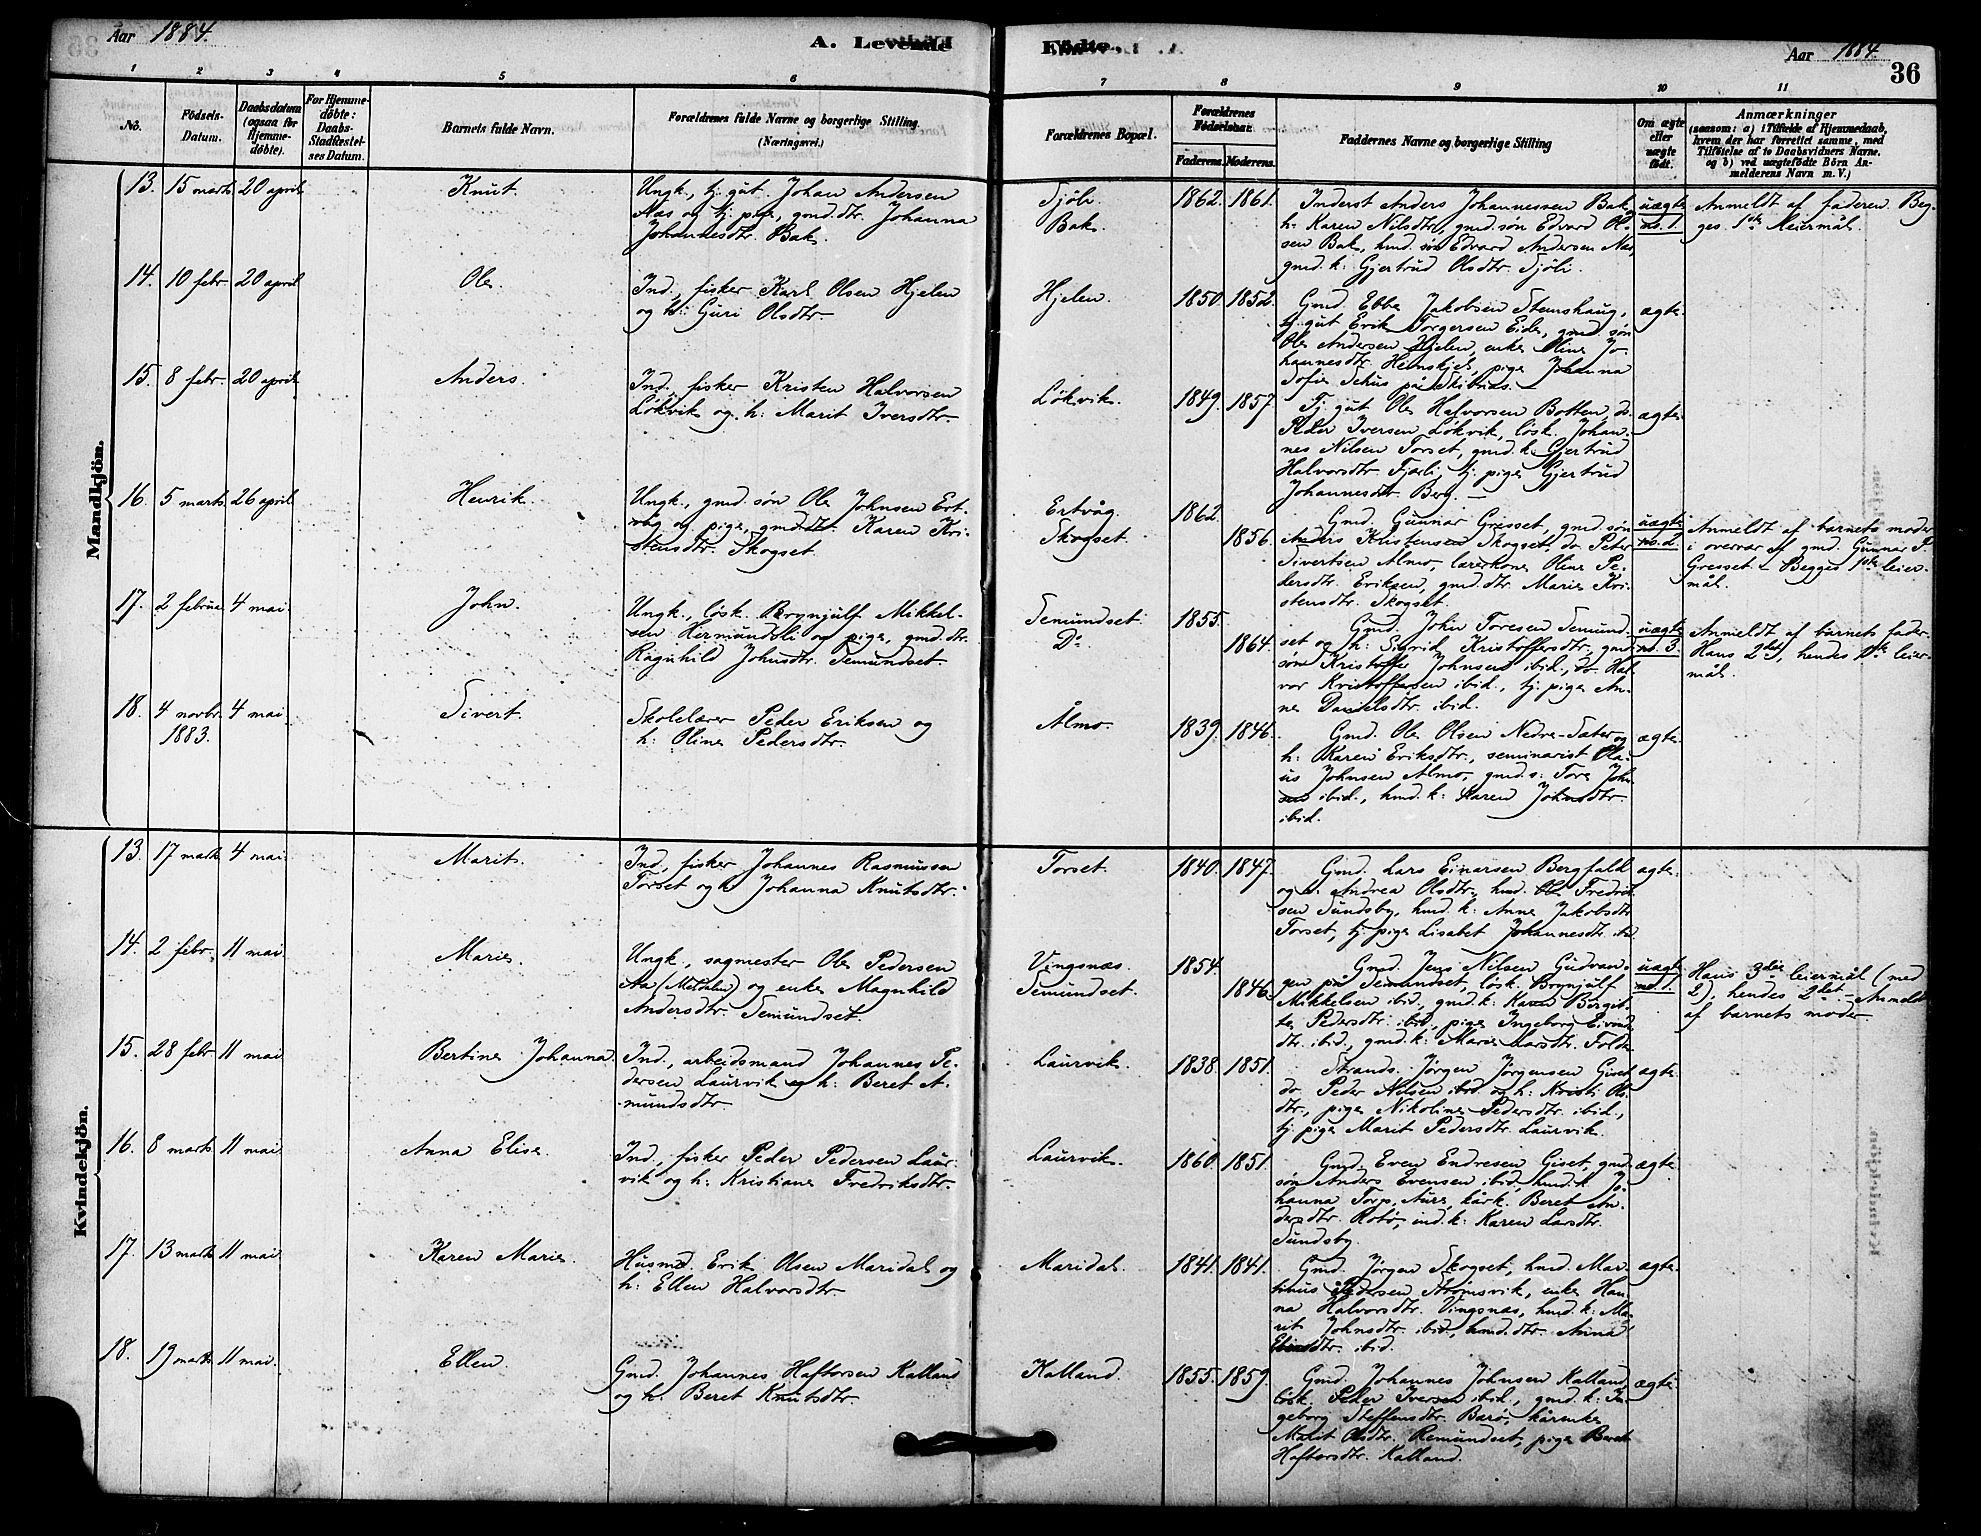 Aar 1884.
A. Levende
Fødte.
Aar 1884.
36
1 2 3 4 5 6 7 8 9 10 11
No.
Fødsels-
Datum.
Daabsdatum
(ogsaa for
Hjemme-
døbte).
For Hjemme-
døbte:
Daabs-
Stadfæstel-
ses Datum.
Barnets fulde Navn.
Forældrenes fulde Navne og borgerlige Stilling.
(Næringsvei.)
Forældrenes Bopæl.
Forældrenes
Fødselsaar.
Faderens. Moderens.
Faddernes Navne og borgerlige Stilling
Om ægte
eller
uægte
født.
Anmærkninger
(saasom: a) i Tilfælde af Hjemmedaab,
hvem der har forrettet samme, med
Tilføielse af to Daabsvidners Navne.
og b) ved uægtefødte Børn An-
melderens Navn m. V.)
Mandkjön.
13. 15 marts 20 april
Knut.
Ungk., tj. gut Johan Andersen
Næs og tj. pige, gmd.dtr. Johanna
Johannesdtr. Bak.
Sjøli.
Bak.
1862. 1861.
Inderst Anders Johannessen Bak,
h: Karen Nilsdtr., gmd.søn Edvard Ol-
sen Bak, hmd. søn Edvard Andersen Næs,
gmd. k: Gjertrud Olsdtr. Sjøli.
uægte
no. 1.
Anmeldt af faderen. Beg-
ges 1ste leiermål.
14. 10 febr. 20 april
Ole
Ind., fisker Karl Olsen Hjelen
og h: Guri Olsdtr.
Hjelen.
1850. 1852.
Gmd. Ebbe Jakobsen Stemshaug,
tj. gut Erik Torgersen Eide, gmd. søn
Ole Andersen Hjelen, enke Oline Jo-
hannesdtr. Hemskjel, pige Johanna
Sofie Sehus på Skibnes.
ægte.
15. 8 febr. 20 april
Anders.
Ind., fisker Kristen Halvorsen
Løkvik og h: Marit Iversdtr.
Løkvik.
1849. 1857.
Tj. gut Ole Halvorsen Botten, do.
Peder Iversen Løkvik, løsk. Johan-
nes Nilsen Torset, gmd. k: Gjertrud
Halvorsdtr. Fjærli, tj. pige Gjertrud
Johannesdtr. Berg.
ægte.
16. 5 marts 26 april
Henrik.
Ungk., gmd. søn Ole Johnsen Ert-
våg og pige, gmd.dtr. Karen Kri-
stensdtr. Skogset.
Ertvåg.
Skogset.
1862.
1856.
Gmd. Gunnar Gresset, gmd søn
Anders Kristensen Skogset, do. Peter
Sivertsen Almo, lærerkone Oline Pe-
dersdtr. Eriksen, gmd. dtr. Marie Kri-
stensdtr. Skogset.
uægte
no. 2.
Anmeldt af barnets moder
i overvær af gmd. Gunnar P.
Gresset. Begges 1ste leier-
mål.
17. 2 februar 4 mai
John.
Ungk., løsk. Brynjulf Mikkel-
sen Hermundsli og pige, gmd. dtr.
Ragnhild Johnsdtr. Semundset.
Semundset.
Do
1855.
1864.
Gmd. John Toresen Semund-
set og h: Sigrid Kristoffersdtr., gmd
søn Kristoffer Johnsen ibid., do. Hal-
vor Kristoffersen ibid., tj. pige An-
ne Danielsdtr. ibid.
uægte
no. 3.
Anmeldt af barnets fader.
Hans 2det, hendes 1ste leier-
mål.
18. 4 novbr. 4 mai
1883.
Sivert.
Skolelærer Peder Eriksen og
h: Oline Pedersdtr.
Ålmo.
1839. 1846.
Gmd. Ole Olsen Nedre-Sæter og
h: Karen Eriksdtr., seminarist Ola-
us Johnsen Ålmo, gmd.s: Tore John-
sen ibid., hmd. k: Karen Johnsdtr.
ibid.
ægte.
Kvindekjön.
13. 17 marts 4 mai
Marit.
Ind., fisker Johannes Rasmussen
Torset og h. Johanna Knutsdtr.
Torset.
1840. 1847.
Gmd. Lars Einarsen Bergfald
og h: Andrea Olsdtr., hmd. Ole Fredrik-
sen Sundsby, hmd. k: Anne Jakobsdtr.
Torset, tj. pige Lisabet Johannesdtr. ibd.
ægte.
14. 2 febr. 11 mai
Marie.
Ungk., sagmester Ole Pedersen
Aa (Meldalen) og enke Magnhild
Andersdtr. Semundset.
Vingsnæs.
Semundset.
1854.
1846.
Gmd. Jens Nilsen Gudvan-
gen på Semundset, løsk. Brynjulf
Mikkelsen ibid., gmd. k: Karen Bergit-
te Pedersdtr. ibid., pige Ingeborg Eivinds-
dtr. ibid., gmd. k: Marie Larsdtr. Folde
uægte
no. 1.
Hans 3die leiermål (med
2), hendes 2det. Anmeldt
af barnets moder
15. 28 febr. 11 mai
Bertine Johanna.
Ind., arbeidsmand Johannes Pe-
dersen Laurvik og h: Beret A-
mundsdtr.
Laurvik.
1838. 1851.
Strands. Jørgen Jørgensen Giset,
do Peder Nilsen ibid. og h: Kristi Ols-
dtr., pige Nikoline Pedersdtr. ibid.,
tj. pige Marit Pedersdtr. Laurvik.
ægte.
16. 8 marts 11 mai
Anna Elise.
Ind., fisker Peder Pedersen Laur-
vik og h: Kristiane Fredriksdtr.
Laurvik.
1860. 1851.
Gmd. Even Endresen Giset, gmd-
søn Anders Evensen ibid., hmd. k. Jo-
hanna Torp, Aure, kårk. Beret An-
dersdtr. Rotø, ind. k: Karen Larsdtr.
Sundsby.
ægte.
17. 13 marts 11 mai
Karen Marie.
Husmd. Erik Olsen Maridal og
h: Ellen Halvorsdtr.
Maridal.
1841. 1841.
Gmd. Jørgen Skogset, hmd. Mar-
tinus Pedersen Strømsvik, enke Han-
na Halvorsdtr. Vingsnæs, hmd. k: Ma-
rit Johnsdtr. ibid., hmd. dtr. Anna
ibid.
ægte.
18. 19 marts 11 mai
Ellen.
Gmd. Johannes Haftorsen Kalland
og h. Beret Knutsdtr.
Kalland.
1855. 1859.
Gmd. Johannes Johnsen Kalland,
løsk. Peder Iversen ibid., gmd. k: In-
geborg Steffensdtr. Barø, kårenke
Marit Olsdtr. Remundset, pige Beret
Haftorsdtr. Kalland.
ægte.